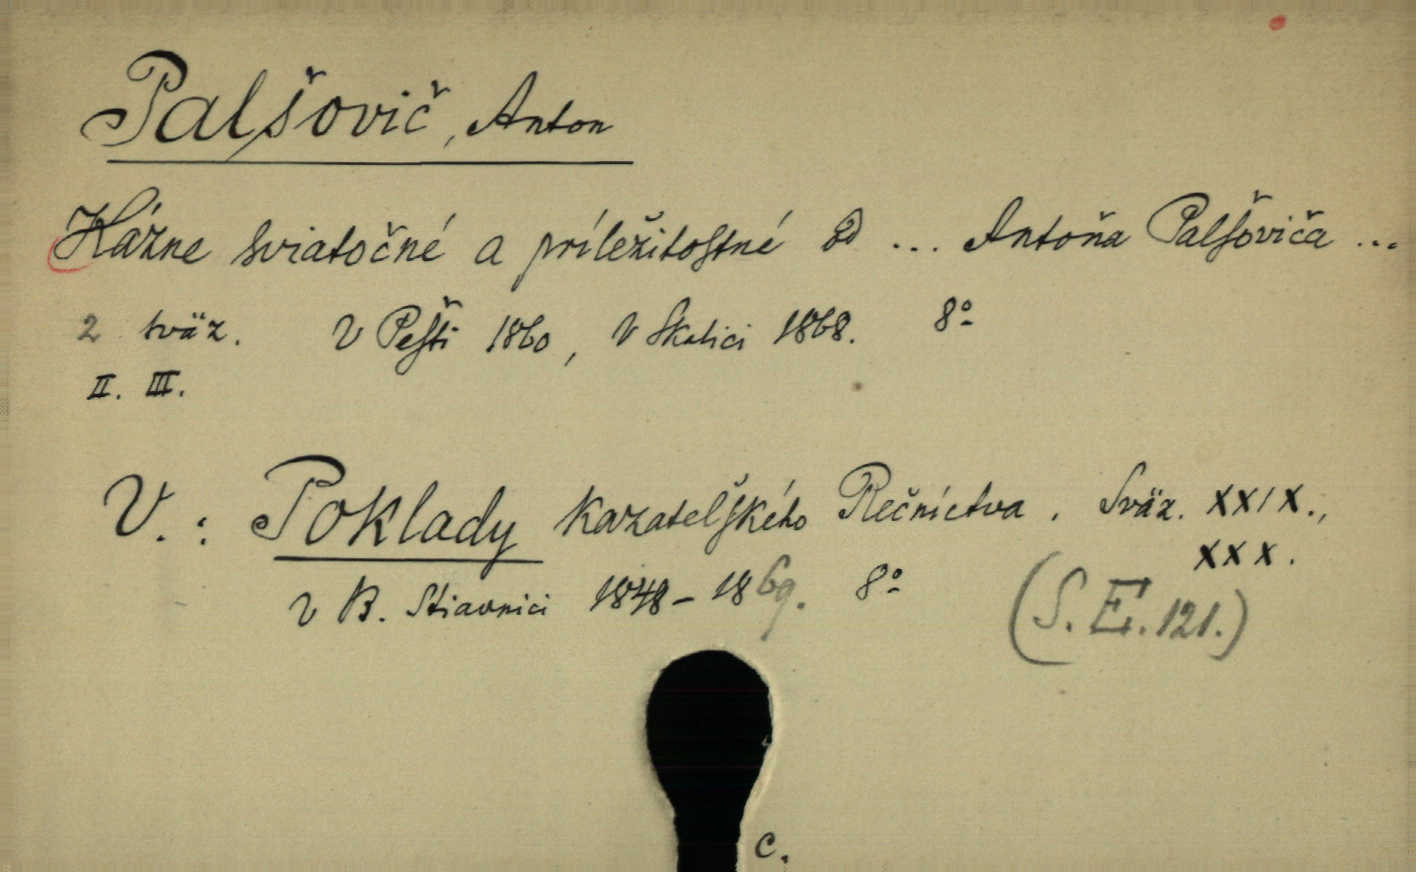 Palšovič, Anton
Kázne sviatočné a príležitostné od ... Antoňa Palšoviča ...
2 sväz. V Pešti 1860, V Skalici 1868. 8º
II. III.
V.: Poklady kazateľského Rečníctva. Sväz. XXIX.,
XXX.
v B. Stiavnici 1848-1869. 8º
(S. E. 121.)
c.